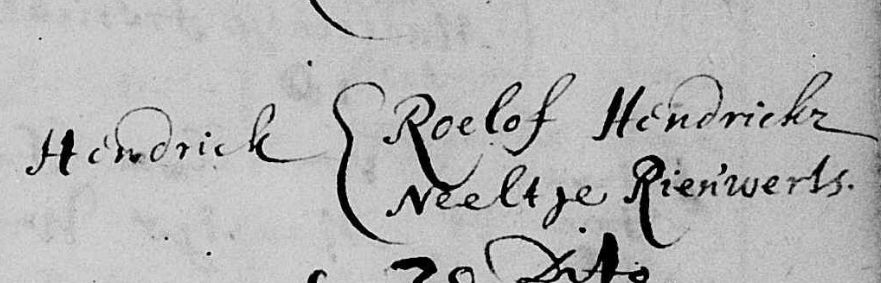 Hendrick { Roelof Hendrickz
Neeltje Rienwerts.
20 Dito